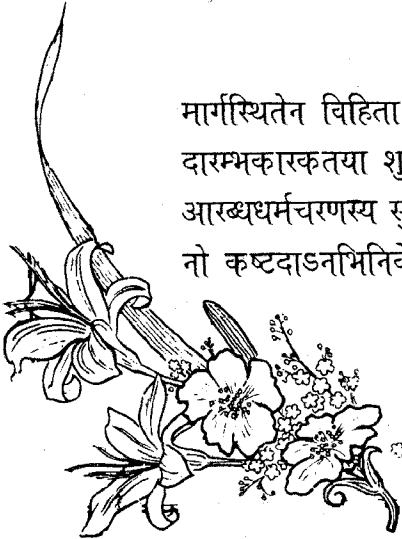 मार्गस्थितेन विहिता
दारम्भकारकतया
आरब्धधर्मचरणस्य
नो कष्टदाऽनभिनिवे